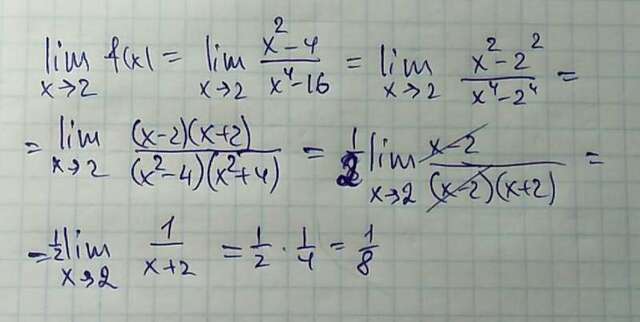 lim_{x→2} f(x) = lim_{x→2} (x²-4)/(x⁴-16) = lim_{x→2} (x²-2²)/(x⁴-2⁴) =
= lim_{x→2} ((x-2)(x+2))/((x²-4)(x²+4)) = 1/2 lim_{x→2} (x-2)/((x-2)(x+2)) =
= 1/2 lim_{x→2} 1/(x+2) = 1/2 · 1/4 = 1/8